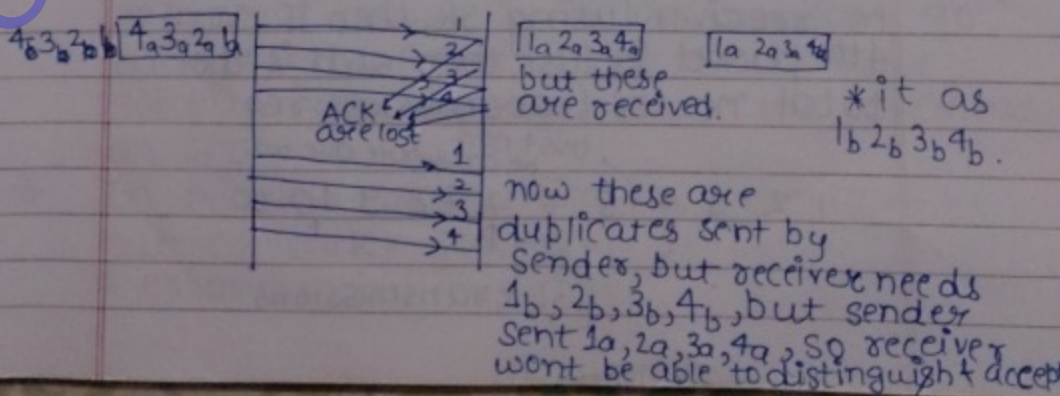 4b 3b 2b 1b 4a 3a 2a 1a
1
2
3
4
ACK
are lost
1
2
3
4
1a 2a 3a 4a
but these
are received.
1a 2a 3a 4a
*it as
1b 2b 3b 4b.
now these are
duplicates sent by
sender, but receiver needs
1b, 2b, 3b, 4b, but sender
sent 1a, 2a, 3a, 4a, so receiver
wont be able to distinguish & accept